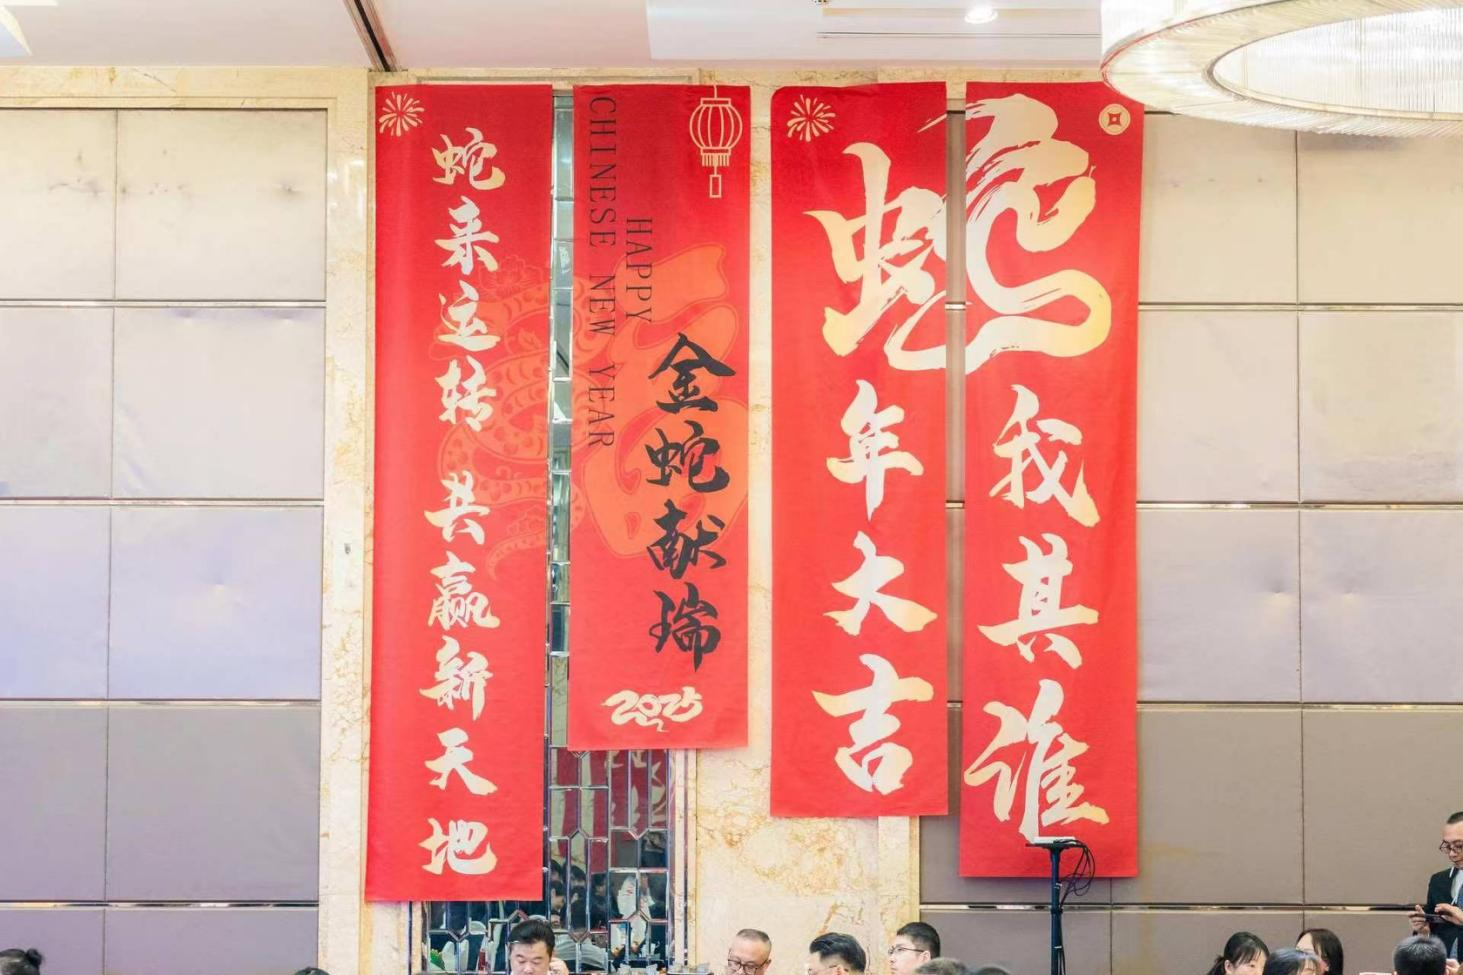 蛇来运转 共赢新天地
CHINESE NEW YEAR
HAPPY
金蛇献瑞
2025
蛇
年大吉
我其谁